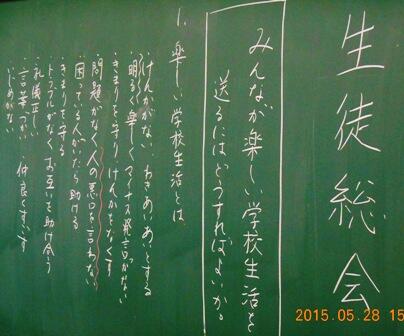 生徒総会
みんなが楽しい学校生活を
送るにはどうすればよいか。
1. 楽しい学校生活とは
・けんかがない わきあいあいとする
・明るく楽しく マイナス発言がない
・きまりを守り けんかをなくす
・問題がなく人の悪口を言わない
・困っている人がいたら助ける
・きまりを守る
・トラブルがなくお互いを助け合う
・礼儀正しい
・言葉づかい 仲良くすごす
・いじめがない
2015.05.28 15